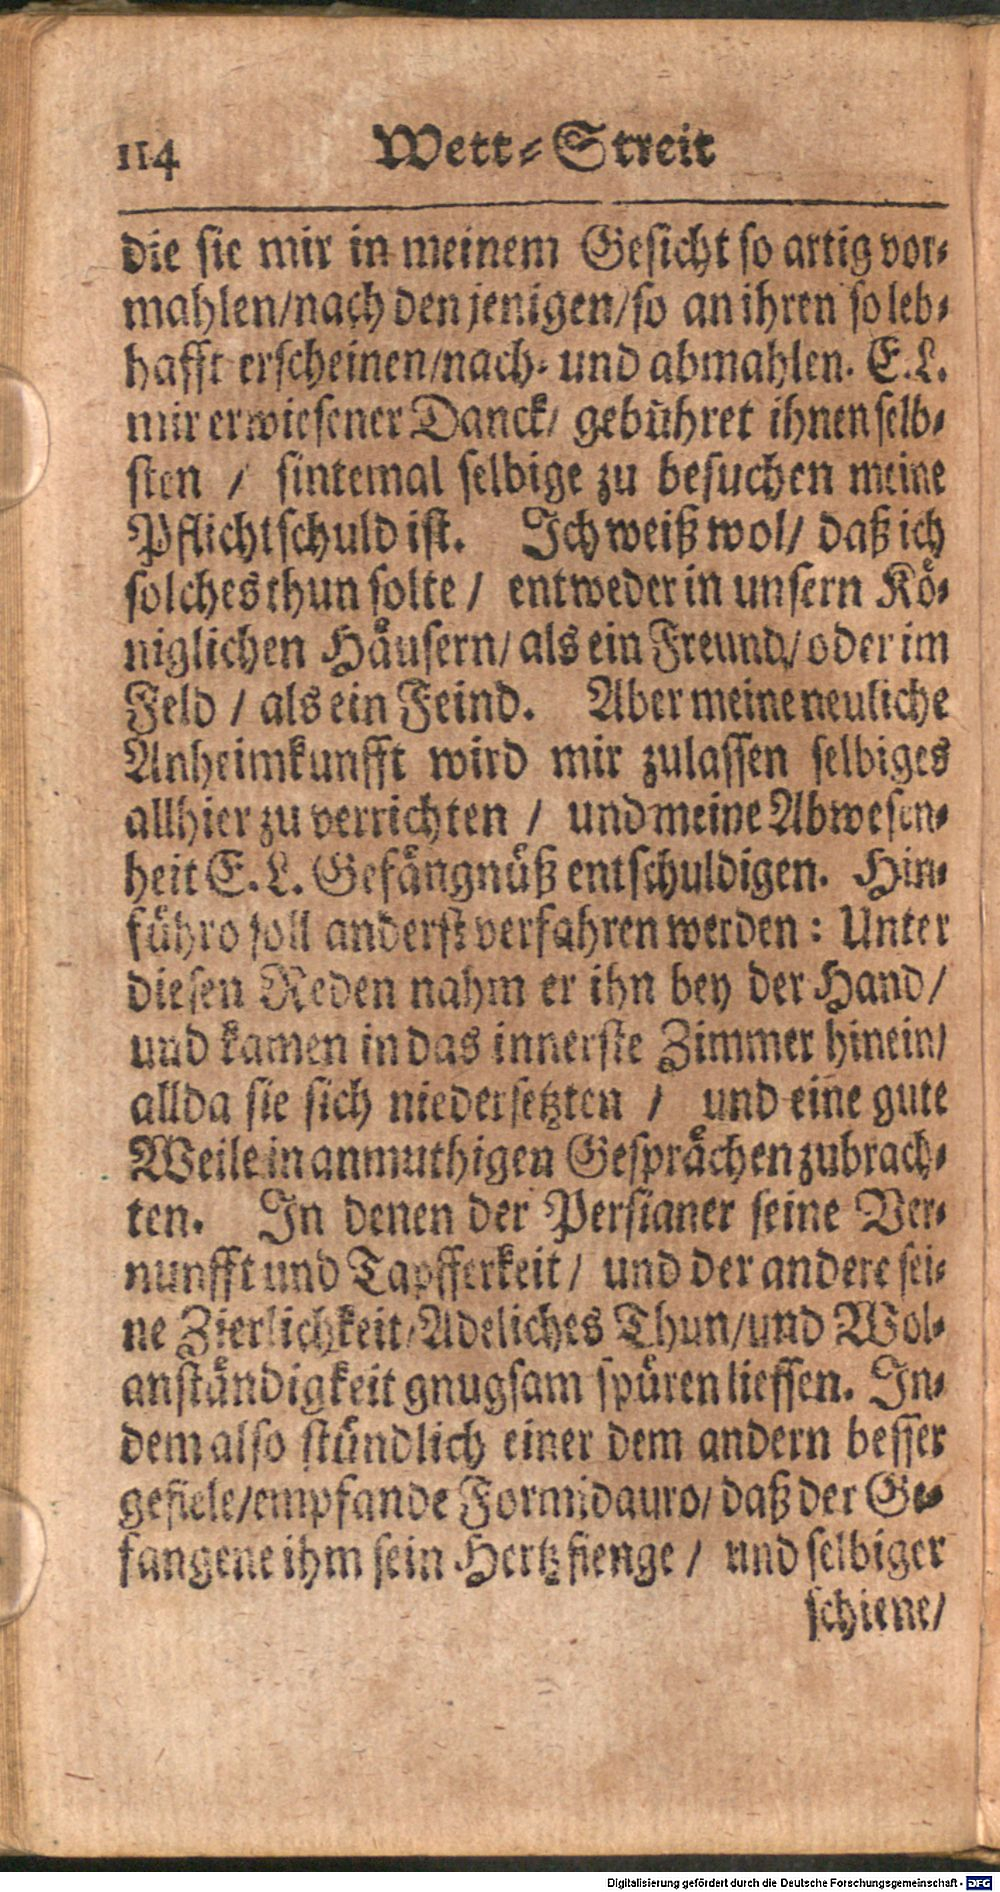 114 Wett-Streit
die sie mir in meinem Gesicht so artig vor-
mahlen/nach den jenigen/so an ihren so leb-
hafft erscheinen/nach- und abmahlen. E.L.
mir erwiesener Danck/ gebühret ihnen selb-
sten / sintemal selbige zu besuchen meine
Pflichtschuld ist. Ich weiß wol/ daß ich
solches thun solte / entweder in unsern Kö-
niglichen Häusern/ als ein Freund/ oder im
Feld / als ein Feind. Aber meine neuliche
Anheimkunfft wird mir zulassen selbiges
allhier zu verrichten / und meine Abwesen-
heit E.L. Gefängnüß entschuldigen. Hin-
führo soll anderst verfahren werden: Unter
diesen Reden nahm er ihn bey der Hand/
und kamen in das innerste Zimmer hinein/
allda sie sich niedersetzten / und eine gute
Weile in anmuthigen Gesprächen zubrach-
ten. In denen der Persianer seine Ver-
nunfft und Tapfferkeit / und der andere sei-
ne Zierlichkeit/Adeliches Thun/und Wol-
anständigkeit gnugsam spüren liessen. In-
dem also stündlich einer dem andern besser
gefiele/empfande Formidauro/ daß der Ge-
fangene ihm sein Hertz fienge / und selbiger
schiene/
Digitalisierung gefördert durch die Deutsche Forschungsgemeinschaft - DFG